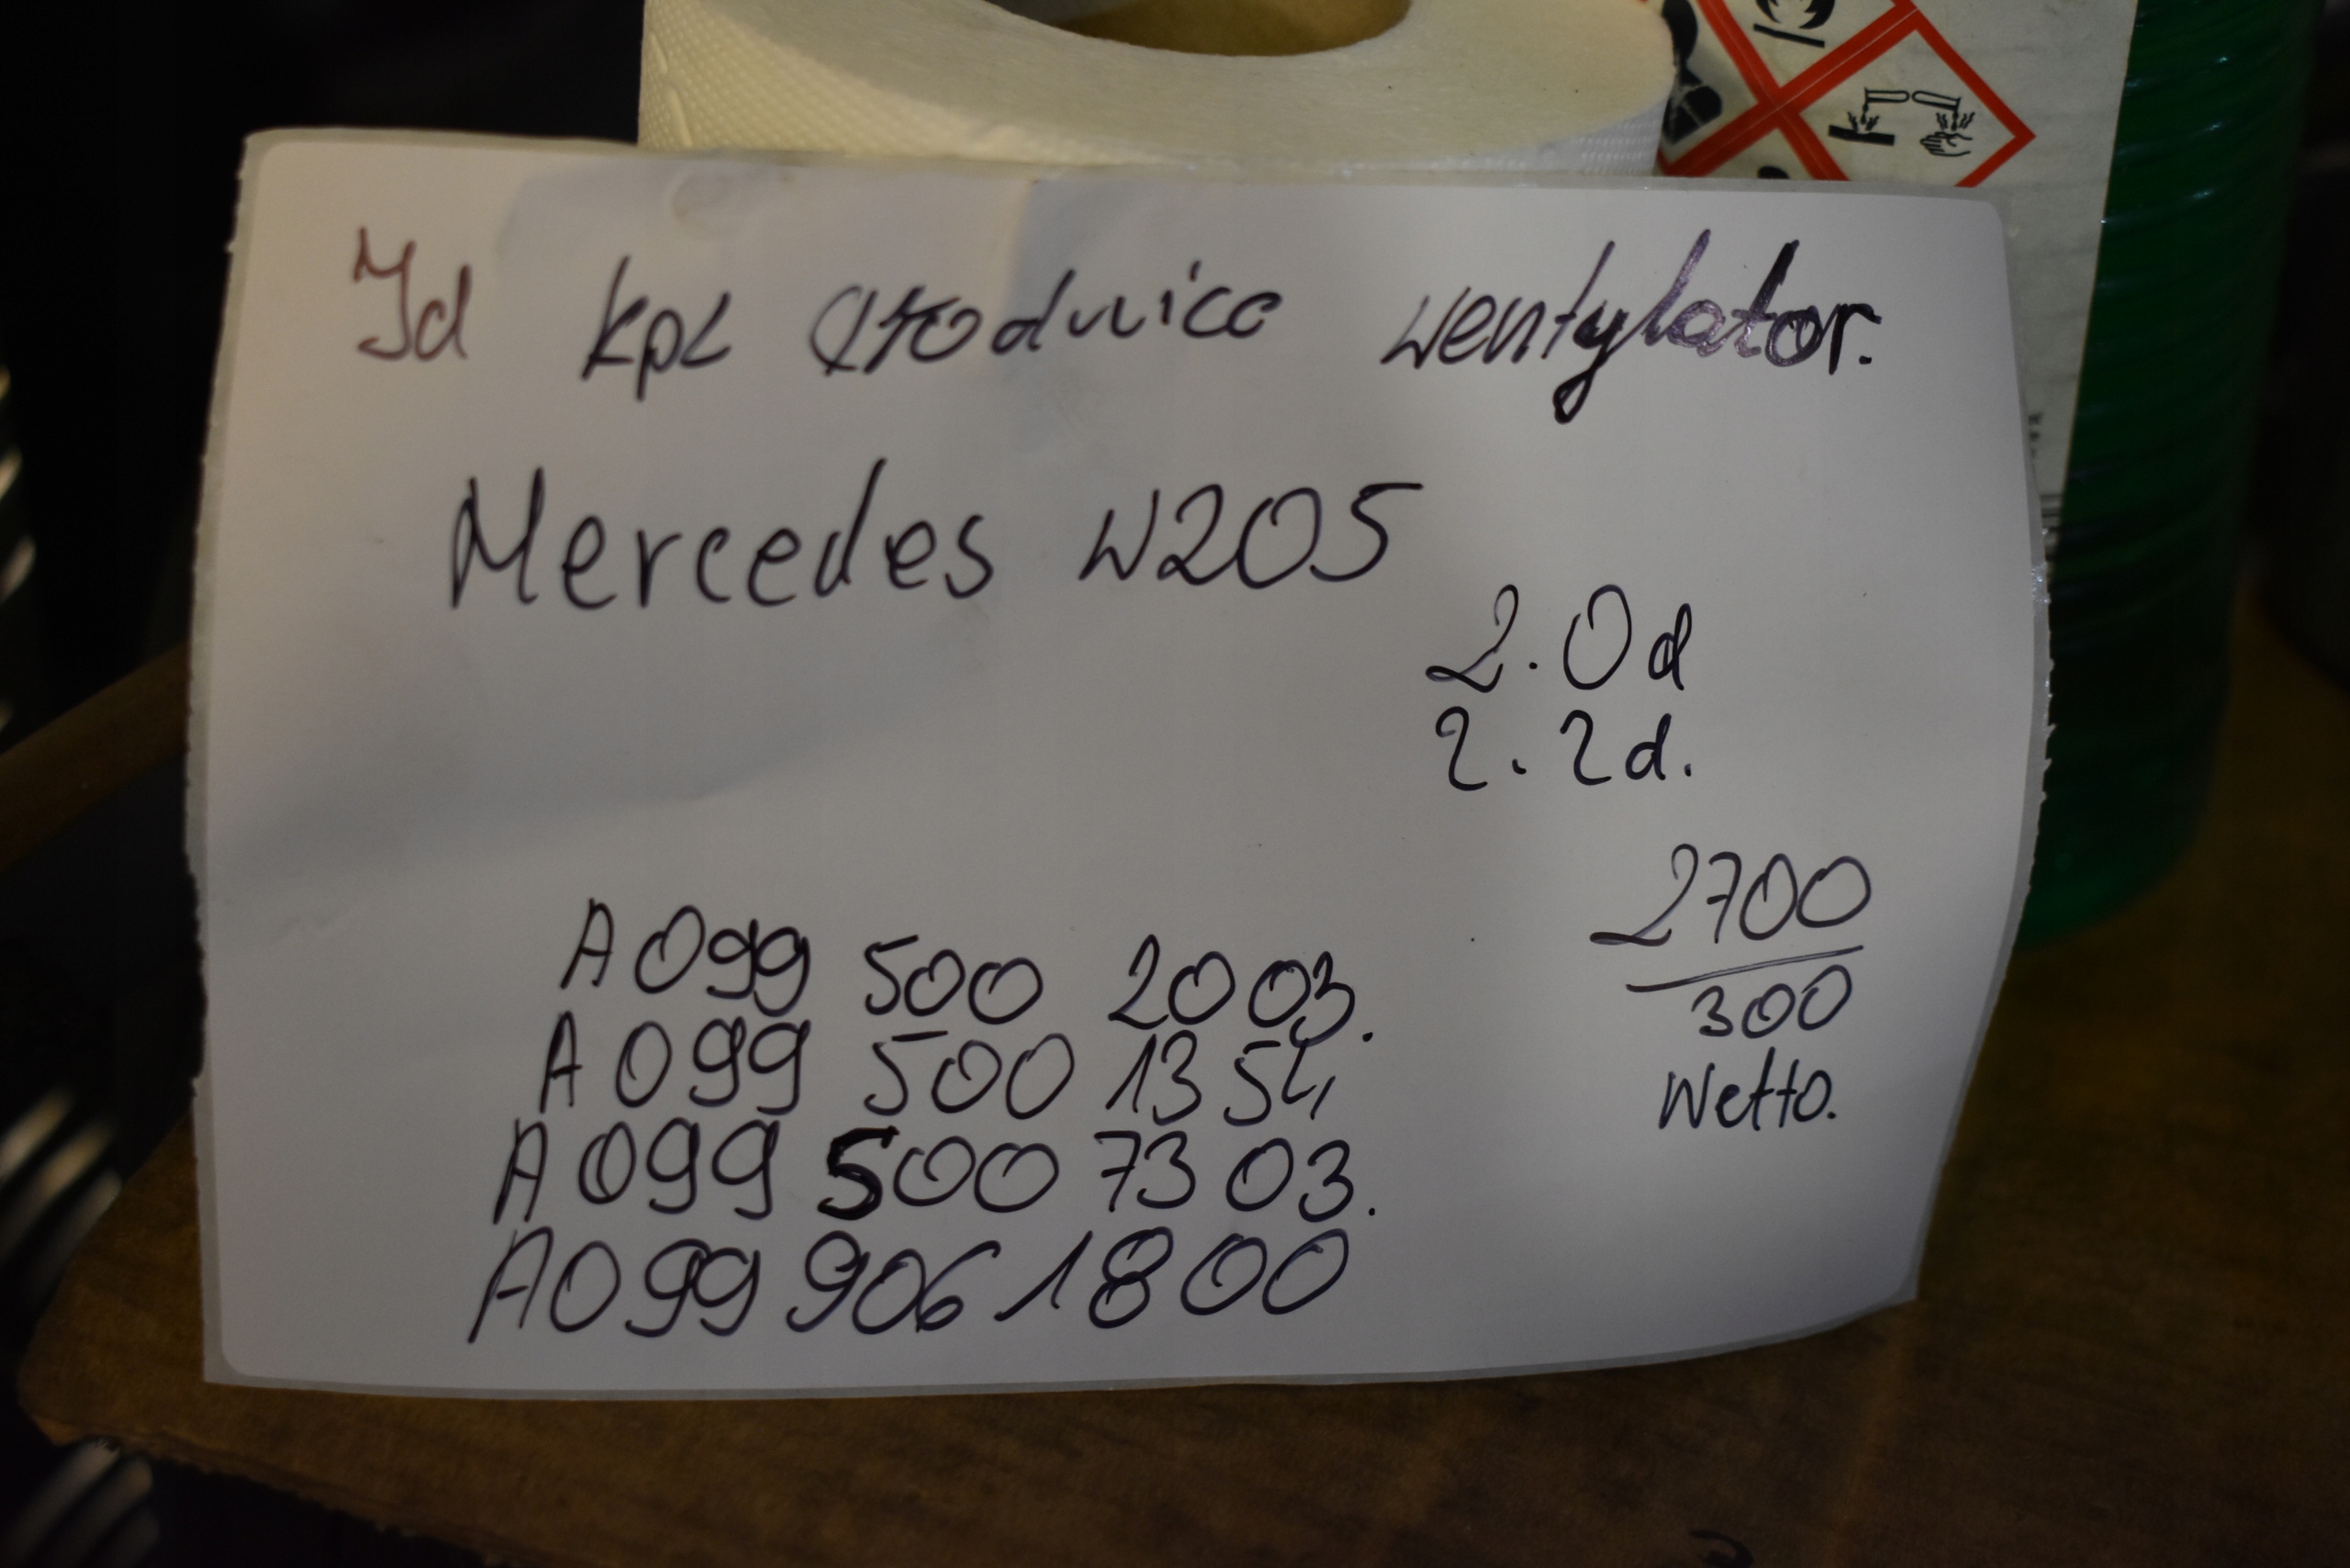 Id kpl Chłodnica wentylator.
Mercedes W205
2.0d
2.2d.
A099 500 2003.
A099 500 1354
A099 500 7303.
A099 906 1800
2700
300
Netto.